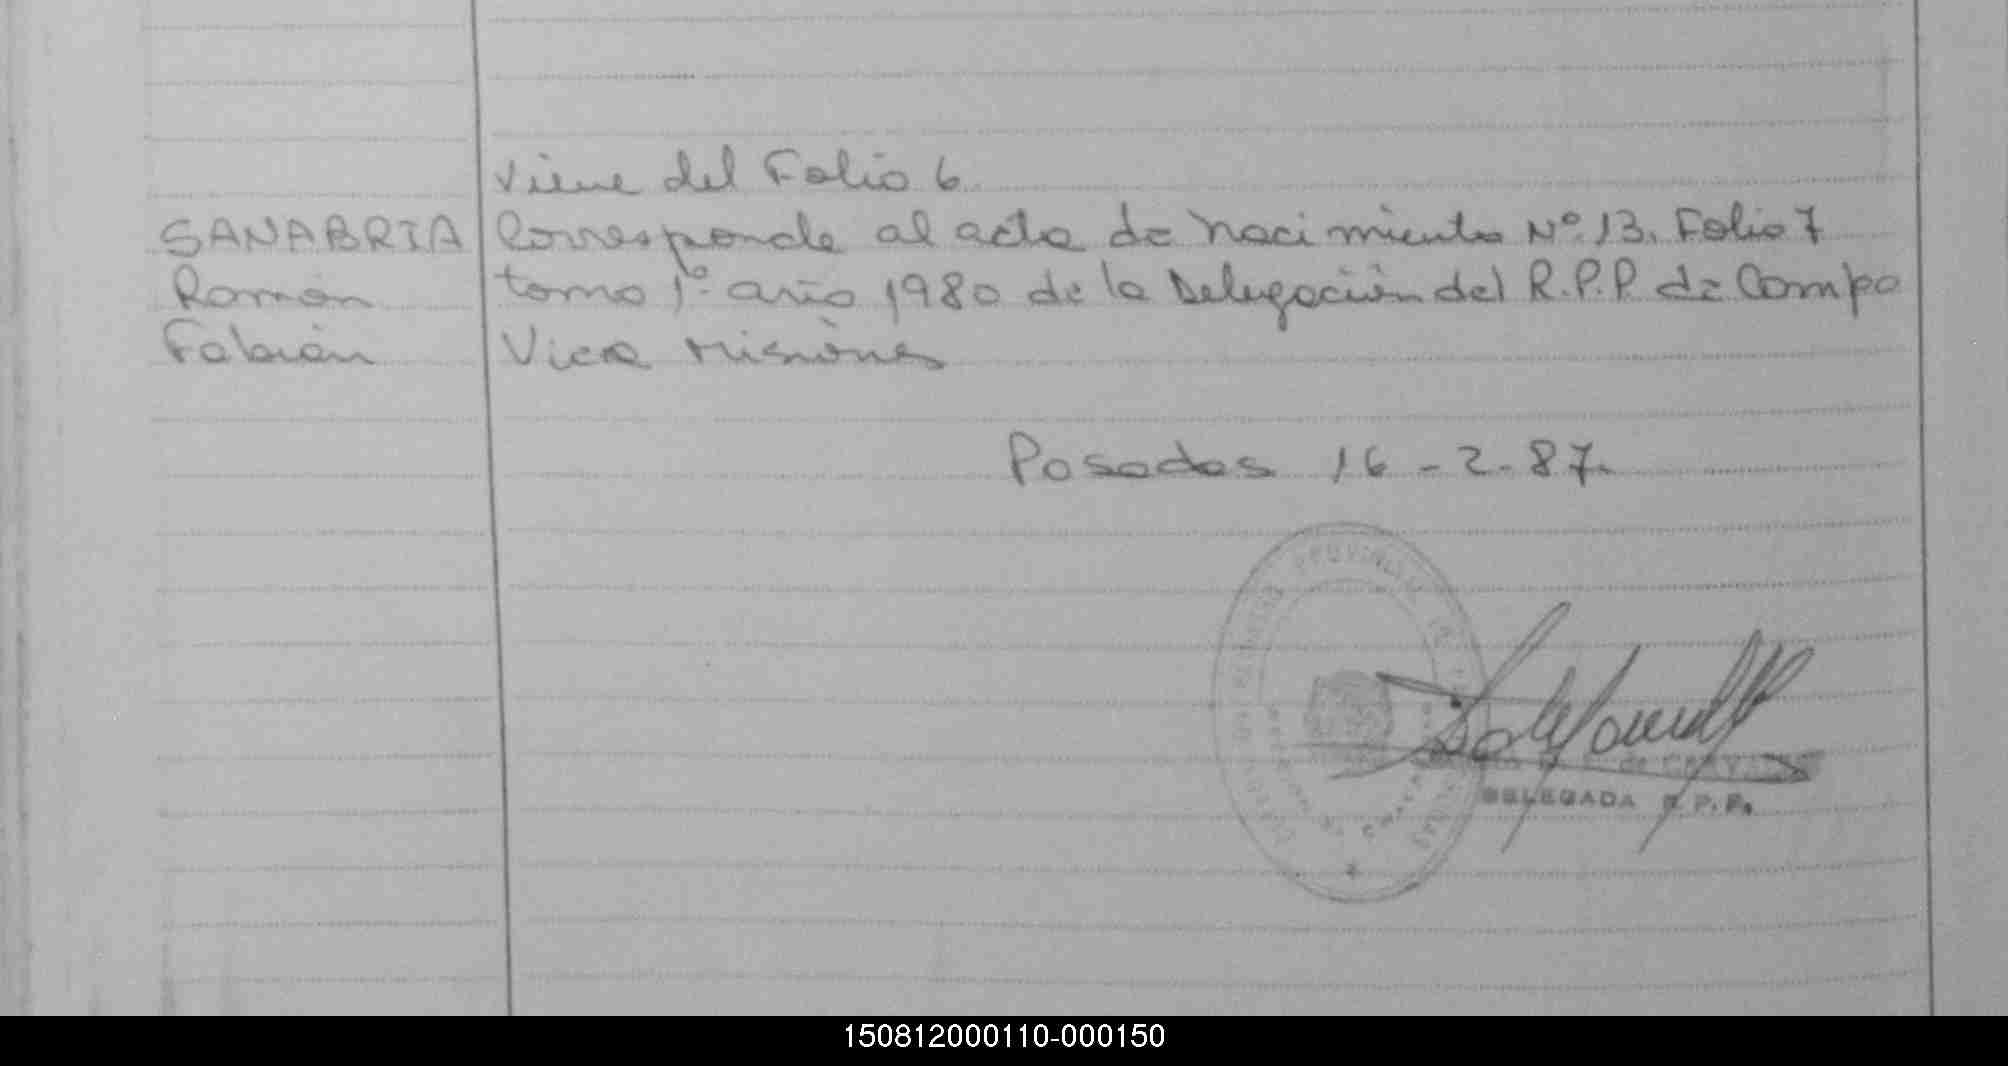 Viene del Folio 6
SANABRIA Corresponde al acta de nacimiento Nº 13. Folio 7
Ramón tomo 1º año 1980 de la Delegación del R.P.P. de Campo
Fabián Viera Misiones
Posadas 16-2-87.
PROVINCIA DE
de
DELEGADA R.P.P.
150812000110-000150